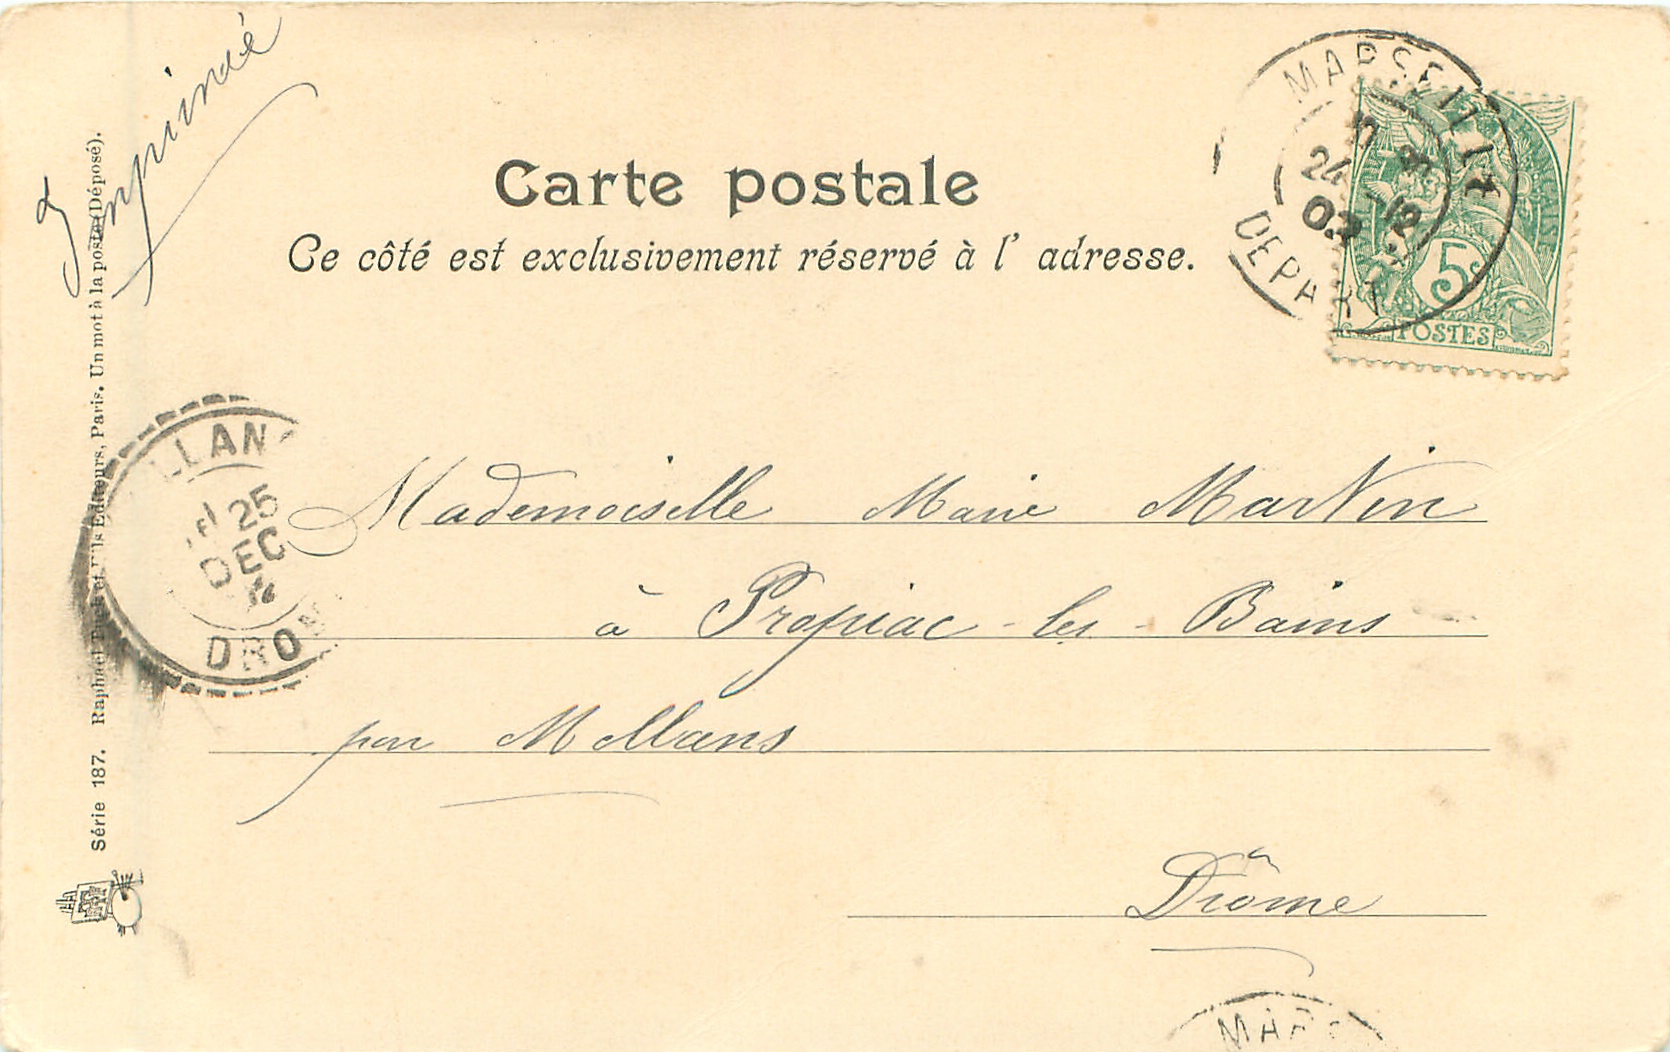 Imprimé
Carte postale
Ce côté est exclusivement réservé à l' adresse.
MARSEILLE
24 12
03
DEPART
5c
POSTES
LLAN
25
DEC
DRO
Mademoiselle Marie Martin
à Propiac-les-Bains
par Mollans
Drôme
Série 187. Raphael Tuck et Fils Editeurs, Paris. Un mot à la poste (Déposé).
MARS